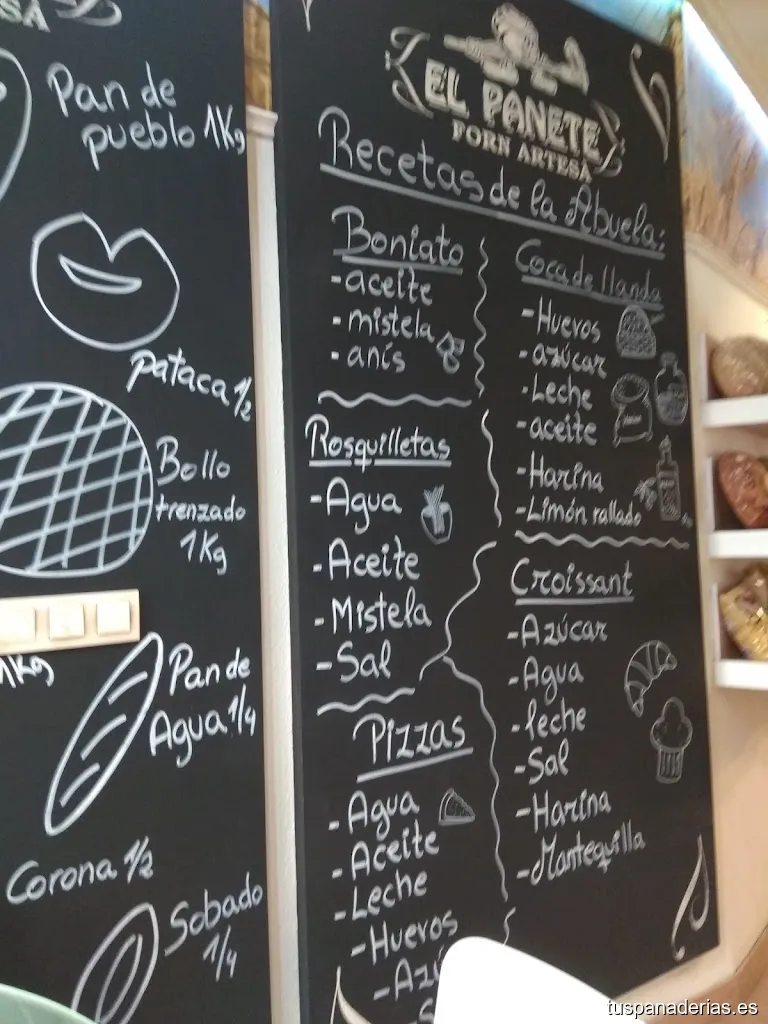 SA
Pan de
pueblo 1Kg
pataca 1/2
Bollo
trenzado
1Kg
1Kg
Pan de
Agua 1/4
Corona 1/2
Sobado
1/4
EL PANETE
FORN ARTESA
Recetas de la Abuela:
Boniato
-aceite
-mistela
-anís
Rosquilletas
-Agua
-Aceite
-Mistela
-Sal
Pizzas
-Agua
-Aceite
-Leche
-Huevos
Coca de llanda
-Huevos
-azúcar
-Leche
-aceite
-Harina
-Limón rallado
Croissant
-Azúcar
-Agua
-leche
-Sal
-Harina
-Mantequilla
tuspanaderias.es